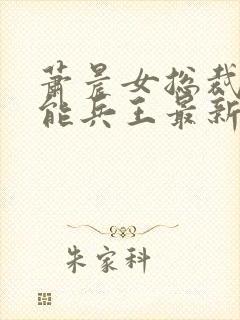 萧晨女总裁
能兵王最新
朱家科